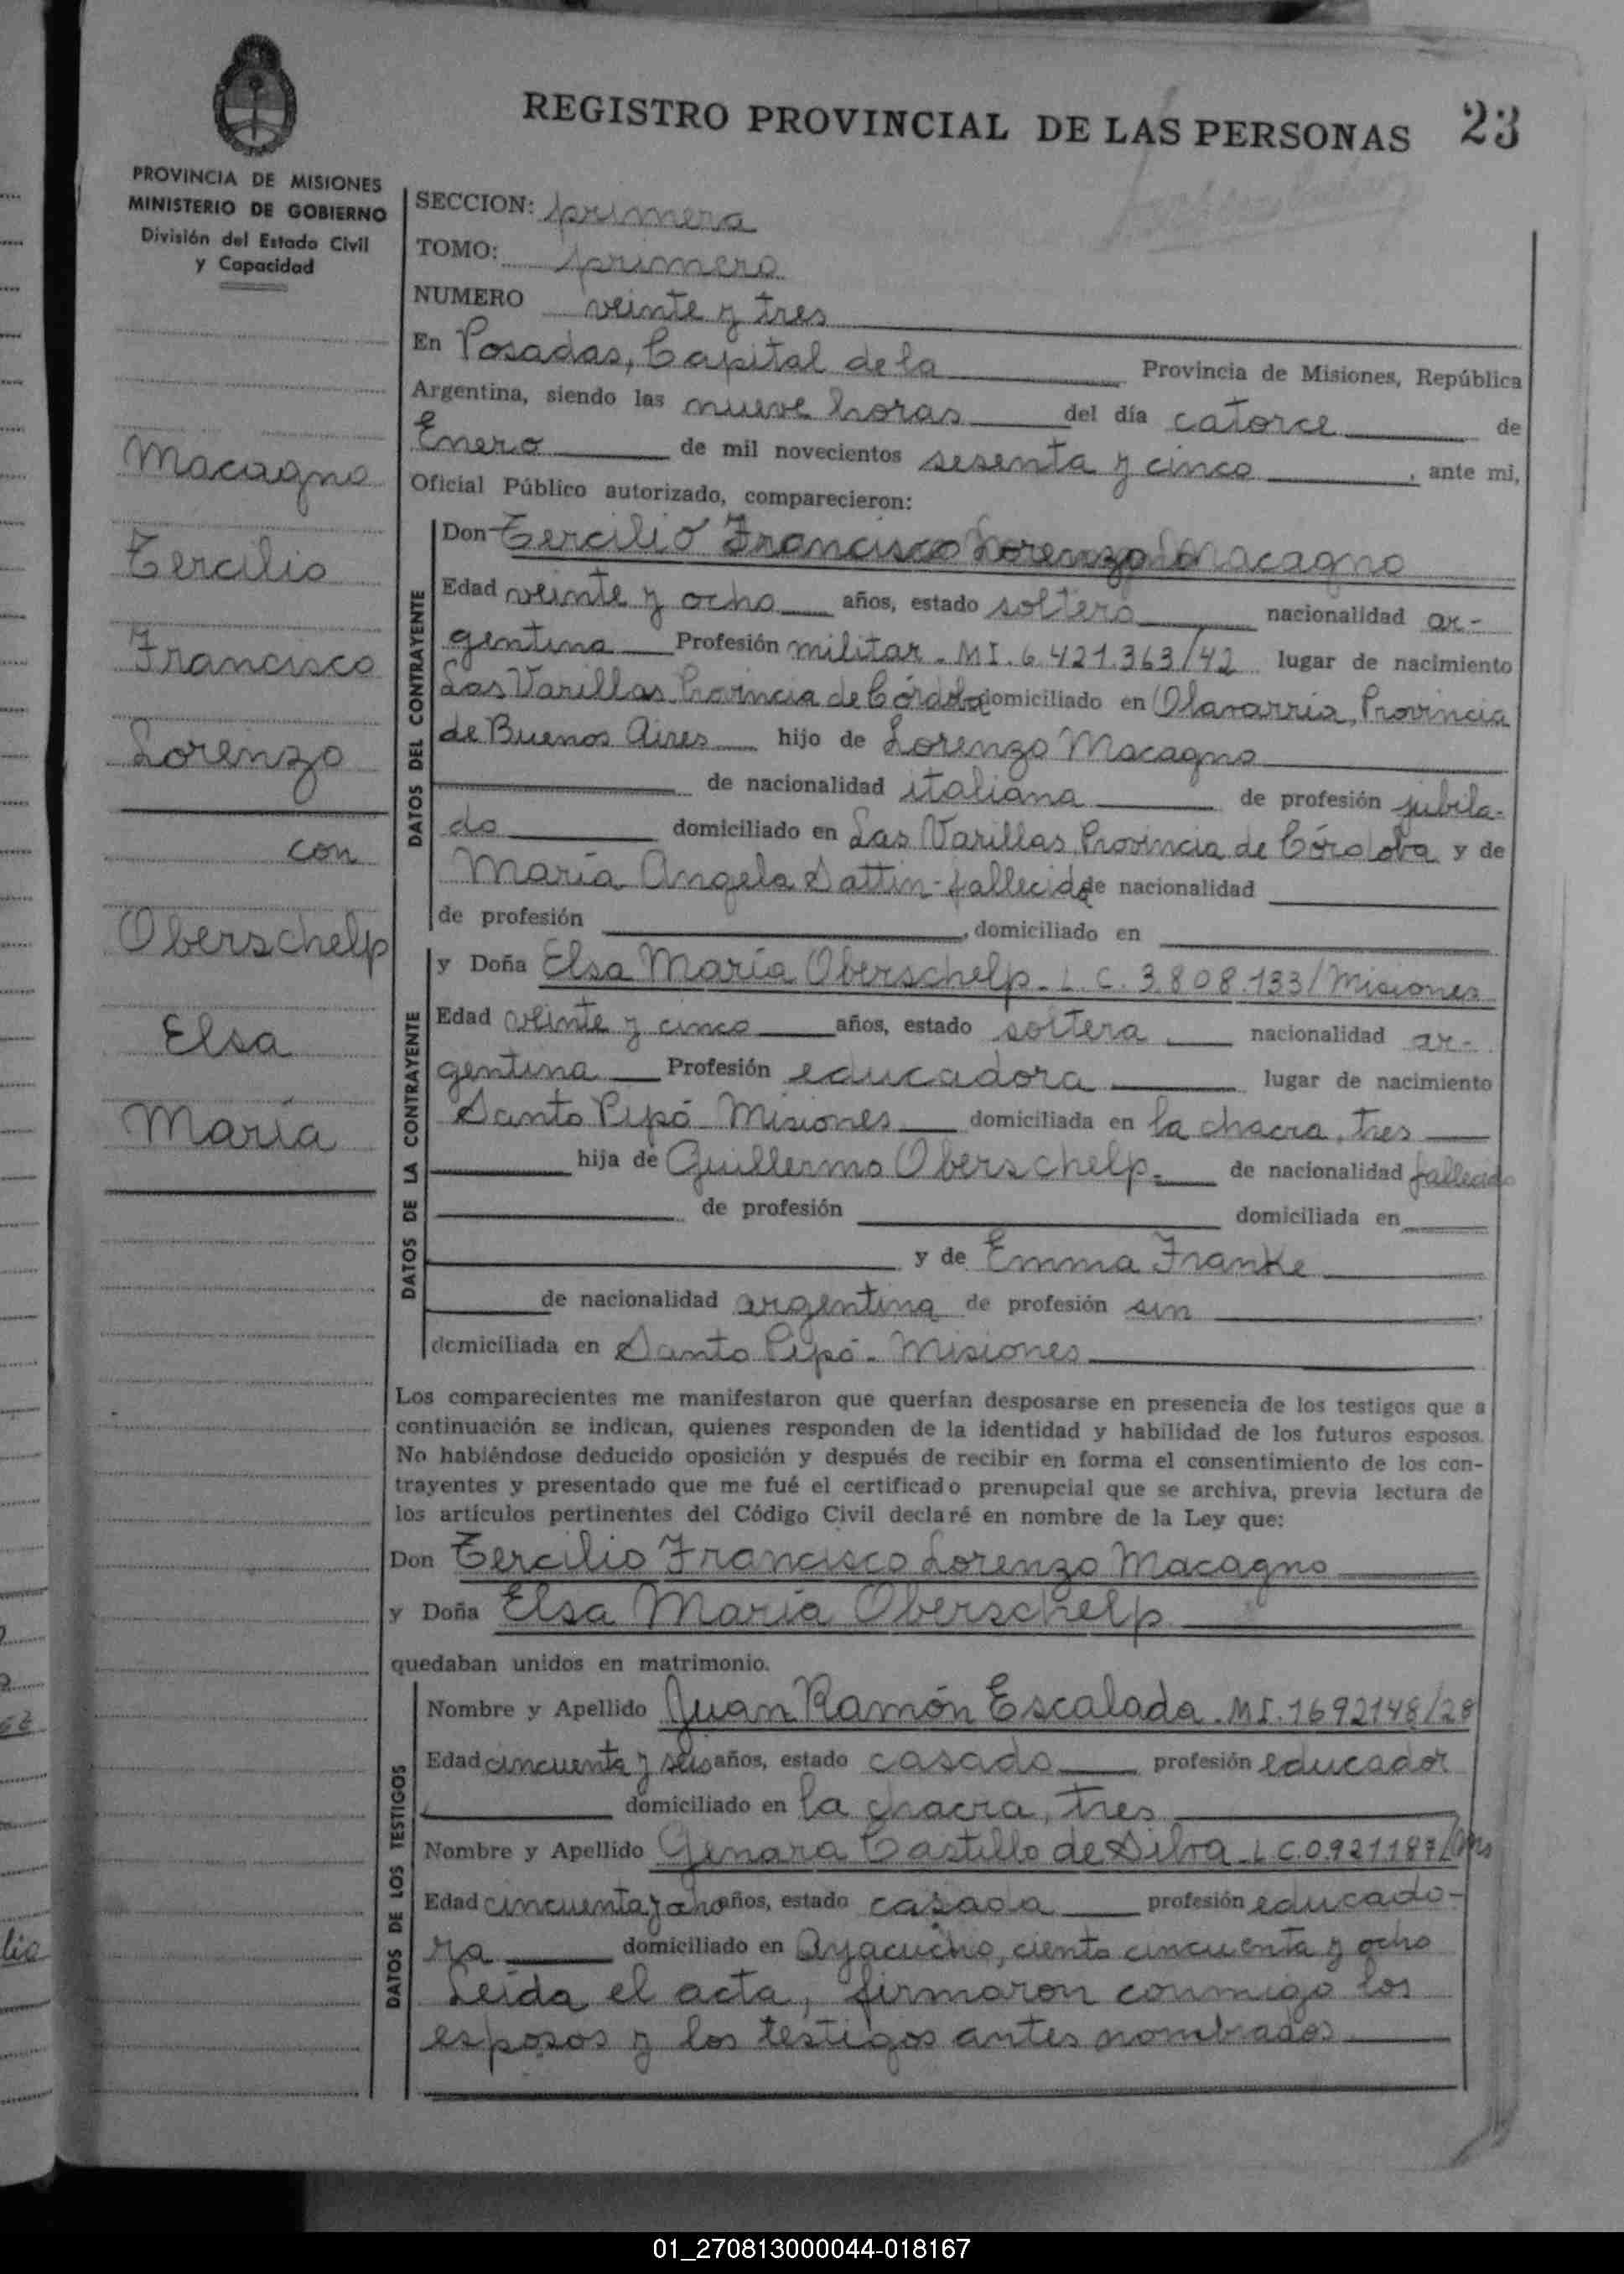 REGISTRO PROVINCIAL DE LAS PERSONAS 23
PROVINCIA DE MISIONES
MINISTERIO DE GOBIERNO
División del Estado Civil
y Capacidad
Macagno
Tercilio
Francisco
Lorenzo
con
Oberschelp
Elsa
María
SECCION: primera
TOMO: primero
NUMERO veinte y tres
En Posadas, Capital de la Provincia de Misiones, República
Argentina, siendo las nueve horas del día catorce de
Enero de mil novecientos sesenta y cinco, ante mi,
Oficial Público autorizado, comparecieron:
DATOS DEL CONTRAYENTE
Don Tercilio Francisco Lorenzo Macagno
Edad veinte y ocho años, estado soltero nacionalidad ar-
gentina Profesión militar. MI. 6.421.363/42 lugar de nacimiento
Las Varillas Provincia de Córdoba domiciliado en Olavarría, Provincia
de Buenos Aires hijo de Lorenzo Macagno
de nacionalidad italiana de profesión jubila-
do domiciliado en Las Varillas Provincia de Córdoba y de
María Angela Sattin - fallecida de nacionalidad
de profesión , domiciliado en
DATOS DE LA CONTRAYENTE
y Doña Elsa María Oberschelp. L.C. 3.808.133/Misiones
Edad veinte y cinco años, estado soltera nacionalidad ar-
gentina Profesión educadora lugar de nacimiento
Santo Pipó Misiones domiciliada en la chacra, tres
hija de Guillermo Oberschelp. de nacionalidad fallecido
de profesión domiciliada en
y de Emma Franke
de nacionalidad argentina de profesión sin
domiciliada en Santo Pipó. Misiones
Los comparecientes me manifestaron que querían desposarse en presencia de los testigos que a
continuación se indican, quienes responden de la identidad y habilidad de los futuros esposos.
No habiéndose deducido oposición y después de recibir en forma el consentimiento de los con-
trayentes y presentado que me fué el certificado prenupcial que se archiva, previa lectura de
los artículos pertinentes del Código Civil declaré en nombre de la Ley que:
Don Tercilio Francisco Lorenzo Macagno
y Doña Elsa María Oberschelp
quedaban unidos en matrimonio.
DATOS DE LOS TESTIGOS
Nombre y Apellido Juan Ramón Escalada. MI. 1692148/28
Edad cincuenta y seis años, estado casado profesión educador
domiciliado en la chacra, tres
Nombre y Apellido Genara Castillo de Silva. L C. 0.921187/
Edad cincuenta y ocho años, estado casada profesión educado-
ra domiciliado en Ayacucho, ciento cincuenta y ocho
Leida el acta, firmaron conmigo los
esposos y los testigos antes nombrados
01_270813000044-018167